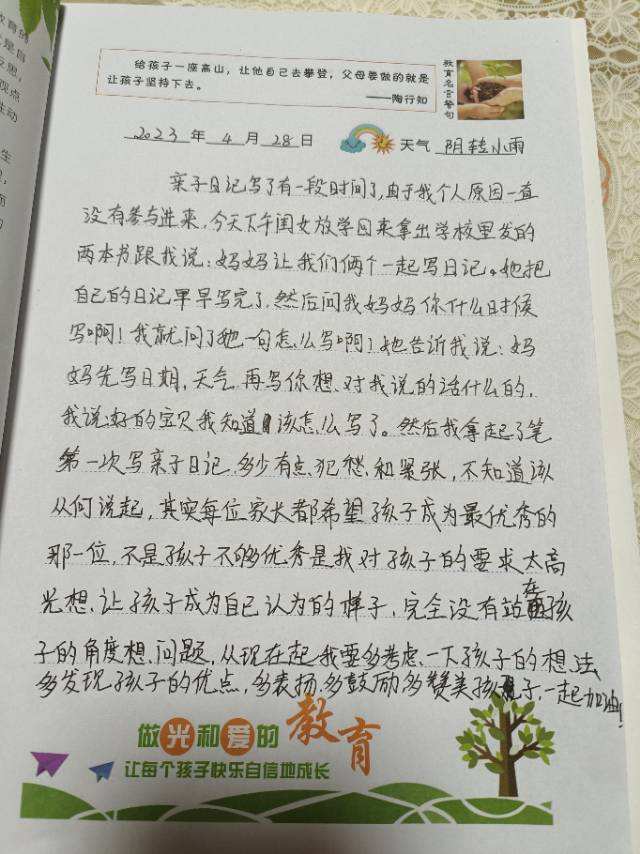 给孩子一座高山，让他自己去攀登，父母要做的就是
让孩子坚持下去。
——陶行知
教育名言警句
2023 年 4 月 28 日
天气 阴转小雨
亲子日记写了有一段时间了，由于我个人原因一直
没有参与进来，今天下午闺女放学回来拿出学校里发的
两本书跟我说：妈妈让我们俩个一起写日记。她把
自己的日记早早写完了，然后问我妈妈你什么时候
写啊！我就问了她一句怎么写啊？她告诉我说：妈
妈先写日期，天气，再写你想对我说的话什么的，
我说：好的宝贝我知道该怎么写了。然后我拿起了笔
第一次写亲子日记，多少有点犯愁和紧张，不知道该
从何说起，其实每位家长都希望孩子成为最优秀的
那一位，不是孩子不够优秀是我对孩子的要求太高
光想让孩子成为自己认为的样子，完全没有站在孩
子的角度想问题，从现在起我要多考虑一下孩子的想法
多发现孩子的优点，多表扬多鼓励多赞美孩子，一起加油！
做光和爱的教育
让每个孩子快乐自信地成长